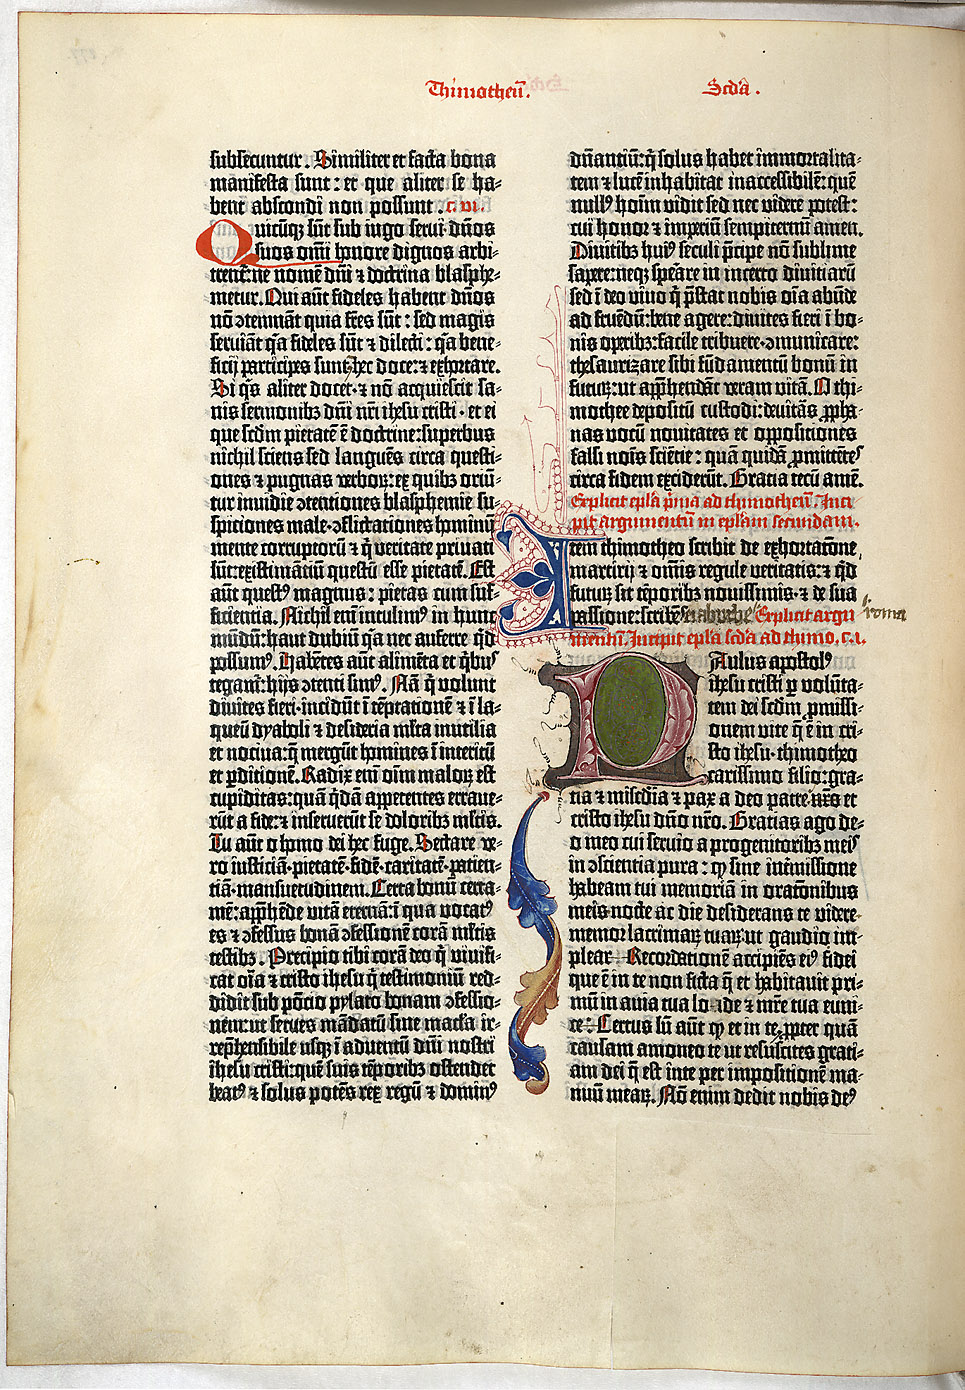 Thimotheū. Scd'a.
subsecuntur. Similiter et facta bona
manifesta sunt: et que aliter se ha-
bent abscondi non possunt. c. vi.
Quicūqȝ sūt sub iugo servi·dn̄os
suos om̄i honore dignos arbi-
trent᷑:ne nomē dn̄i ⁊ doctrina blasphe-
metur. Qui aūt fideles habent dn̄os
nō ꝯtemnāt quia fr̄es sūt: sed magis
serviāt q̄a fideles sūt ⁊ dilecti: q̄a bene-
ficij participes sunt. hec doce: ⁊ exhortare.
Si q̄s aliter docet·⁊ nō acquiescit sa-
nis sermonibȝ dn̄i nr̄i ihesu cristi·et ei
que scd̄m pietatē ē doctrine:superbus
nichil sciens sed languēs circa questi-
ones ⁊ pugnas verboꝝ: ex quibȝ oriū-
tur invidie ꝯtentiones blasphemie su-
spiciones male·ꝯflictationes hominū
mente corruptorū ⁊ q̄ veritate privati
sūt:existimātiū questū esse pietatē. Est
aūt questꝰ magnus: pietas cum suf-
ficientia. Nichil em̄ intulimꝰ in hunc
mūdū:haut dubiū q̄a nec auferre q̄d
possumꝰ. Habētes aūt alimēta et q̄bus
tegam᷑:hijs ꝯtenti simꝰ. Nā q̄ volunt
divites fieri·incidūt ī tēptationē ⁊ ī la-
queū dyaboli ⁊ desideria ml̄ta inutilia
et nociva:q̄ mergūt homines ī interitū
et ꝑditionē. Radix em̄ oīm maloꝝ est
cupiditas:quā q̄dā appetentes errave-
rūt a fide:⁊ inseruerūt se doloribȝ ml̄tis.
Tu aūt o homo dei hec fuge. Sectare ve-
ro iusticiā·pietatē·fidē·caritatē·patien-
tiā·mansuetudinem. Certa bonū certa-
mē: apprehēde vitā eternā:ī qua vocatꝰ
es ⁊ ꝯfessus bonā ꝯfessionē corā ml̄tis
testibȝ. Precipio tibi corā deo q̄ vivifi-
cat oīa ⁊ cristo ihesu q̄ testimoniū red-
didit sub pōcio pylato bonam ꝯfessio-
nem:ut serves mādatū sine macl̄a ir-
rep̄hensibile usqȝ ī adventū dn̄i nostri
ihesu cristi:quē suis tēporibȝ ostendet
beatꝰ ⁊ solus potēs rex regū ⁊ dominꝰ
dn̄antiū:q̄ solus habet immortalita-
tem ⁊ lucē inhabitat inaccessibilē: quē
nullꝰ hoīm vidit sed nec videre potest:
cui honor ⁊ imperiū sempiternū amen.
Divitibȝ huiꝰ seculi p̄cipe nō sublime
sapere: neqȝ sperare in incerto divitiarū
sed ī deo vivo q̄ p̄stat nobis oīa abūde
ad fruēdū: bene agere: divites fieri ī bo-
nis operibȝ: facile tribuere·ꝯmunicare:
thesaurizare sibi fūdamentū bonū in
futuꝝ: ut app̄hendāt veram vitā. O thi-
mothee depositū custodi: devitās ꝓpha-
nas vocū novitates et oppositiones
falsi noīs sciētie: quā quidā ꝓmittētes
circa fidem exciderūt. Gratia tecū amē.
Explicit epl̄a p̄ma ad thimotheū. Inci-
pit argumentū in epl̄am secundam.
Item thimotheo scribit de exhortatōne
martirij ⁊ om̄is regule veritatis: ⁊ q̄d
futuꝝ sit tēporibȝ novissimis·⁊ de sua
passione: scribēs Explicit argu- roma
mentū. Incipit epl̄a scd̄a ad thimo. c. i.
Paulus apostolꝰ
ihesu cristi ꝑ volūta-
tem dei scd̄m ꝓmissi-
onem vite q̄ ē in cri-
sto ihesu·thimotheo
carissimo filio: gra-
tia ⁊ misc̄dia ⁊ pax a deo patre nr̄o et
cristo ihesu dn̄o nr̄o. Gratias ago de-
o meo cui servio a progenitoribȝ meis
in ꝯscientia pura: qȝ sine int̄missione
habeam tui memoriā in oratōnibus
meis nocte ac die desiderans te videre
memor lacrimaꝝ tuaꝝ ut gaudio im-
plear. Recordationē accipiēs eiꝰ fidei
que ē in te non ficta q̄ et habitavit pri-
mū in avia tua loide ⁊ mr̄e tua euni-
ce: Certus sū aūt qȝ et in te. ꝓpter quā
causam amoneo te ut resuscites grati-
am dei q̄ est in te per impositionē ma-
nuū meaꝝ. Nō enim dedit nobis deꝰ